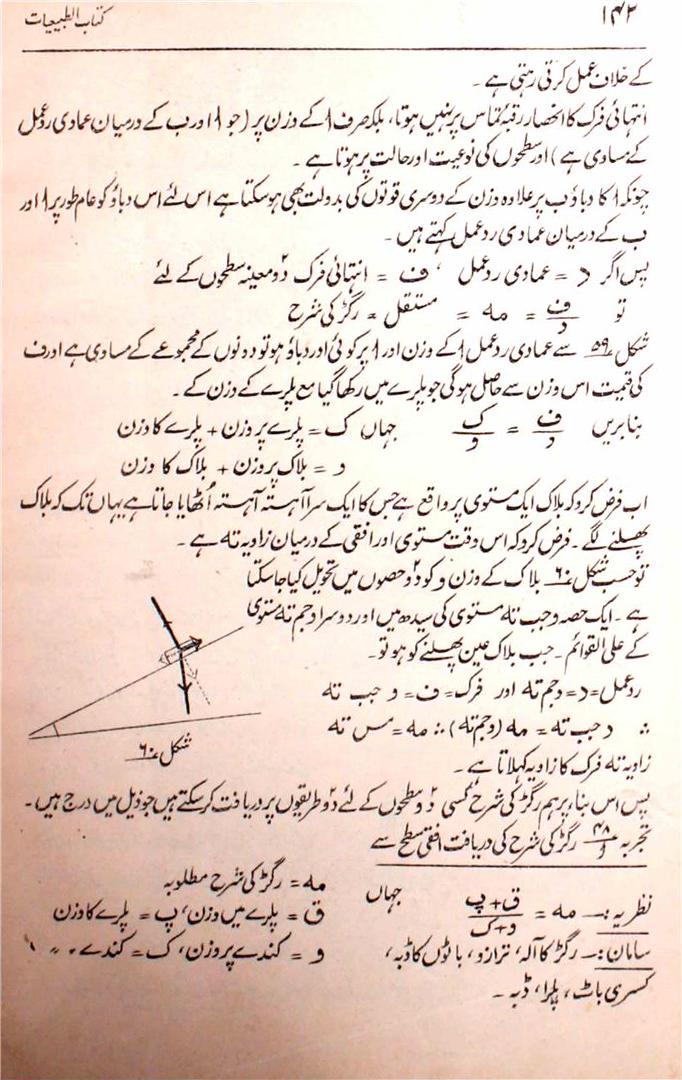 ۱۴۲
کتاب الطبیعیات
کے خلاف عمل کرتی رہتی ہے ۔
انتہائی فرک کا انحصار رقبۂ تماس پر نہیں ہوتا، بلکہ صرف ا کے وزن پر (جو ا اور ب کے درمیان عمادی ردعمل
کے مساوی ہے) اور سطحوں کی نوعیت اور حالت پر ہوتا ہے ۔
چونکہ ا کا دباؤ ب پر علاوہ وزن کے دوسری قوتوں کی بدولت بھی ہو سکتا ہے اس لئے اس دباؤ کو عام طور پر ا اور
ب کے درمیان عمادی ردعمل کہتے ہیں ۔
پس اگر د = عمادی ردعمل ، ف = انتہائی فرک دو معینہ سطحوں کے لئے
تو ف/د = مہ = مستقل = رگڑ کی شرح
شکل ۵۹ سے عمادی ردعمل ا کے وزن اور ا پر کوئی اور دباؤ ہو تو دونوں کے مجموعے کے مساوی ہے اور ف
کی قیمت اس وزن سے حاصل ہوگی جو پلڑے میں رکھا گیا مع پلڑے کے وزن کے ۔
بنابریں ف/د = ک/و جہاں ک = پلڑے پر وزن + پلڑے کا وزن
و = بلاک پر وزن + بلاک کا وزن
اب فرض کرو کہ بلاک ایک مستوی پر واقع ہے جس کا ایک سرا آہستہ آہستہ اُٹھایا جاتا ہے یہاں تک کہ بلاک
پھسلنے لگے ۔ فرض کرو کہ اس وقت مستوی اور افقی کے درمیان زاویہ تہ ہے ۔
تو حسب شکل ۶۰ بلاک کے وزن و کو دو حصوں میں تحویل کیا جا سکتا
ہے ۔ ایک حصہ و جب تہ مستوی کی سیدھ میں اور دوسرا و جم تہ مستوی
کے علی القوائم ۔ جب بلاک عین پھسلنے کو ہو تو ۔
ردعمل = د = و جم تہ اور فرک = ف = و جب تہ
∴ و جب تہ = مہ (و جم تہ) ∴ مہ = مس تہ
شکل ۶۰
زاویہ تہ فرک کا زاویہ کہلاتا ہے ۔
پس اس بناء پر ہم رگڑ کی شرح کسی دو سطحوں کے لئے دو طریقوں پر دریافت کر سکتے ہیں جو ذیل میں درج ہیں ۔
تجربہ ۴۸/و رگڑ کی شرح کی دریافت افقی سطح سے
نظریہ :- مہ = ق+پ/و+ک جہاں مہ = رگڑ کی شرح مطلوبہ
ق = پلڑے میں وزن، پ = پلڑے کا وزن
سامان :- رگڑ کا آلہ، ترازو، باٹوں کا ڈبہ، و = کندے پر وزن، ک = کندے ۔ " "
کسری باٹ، پلڑا، ڈبہ ۔